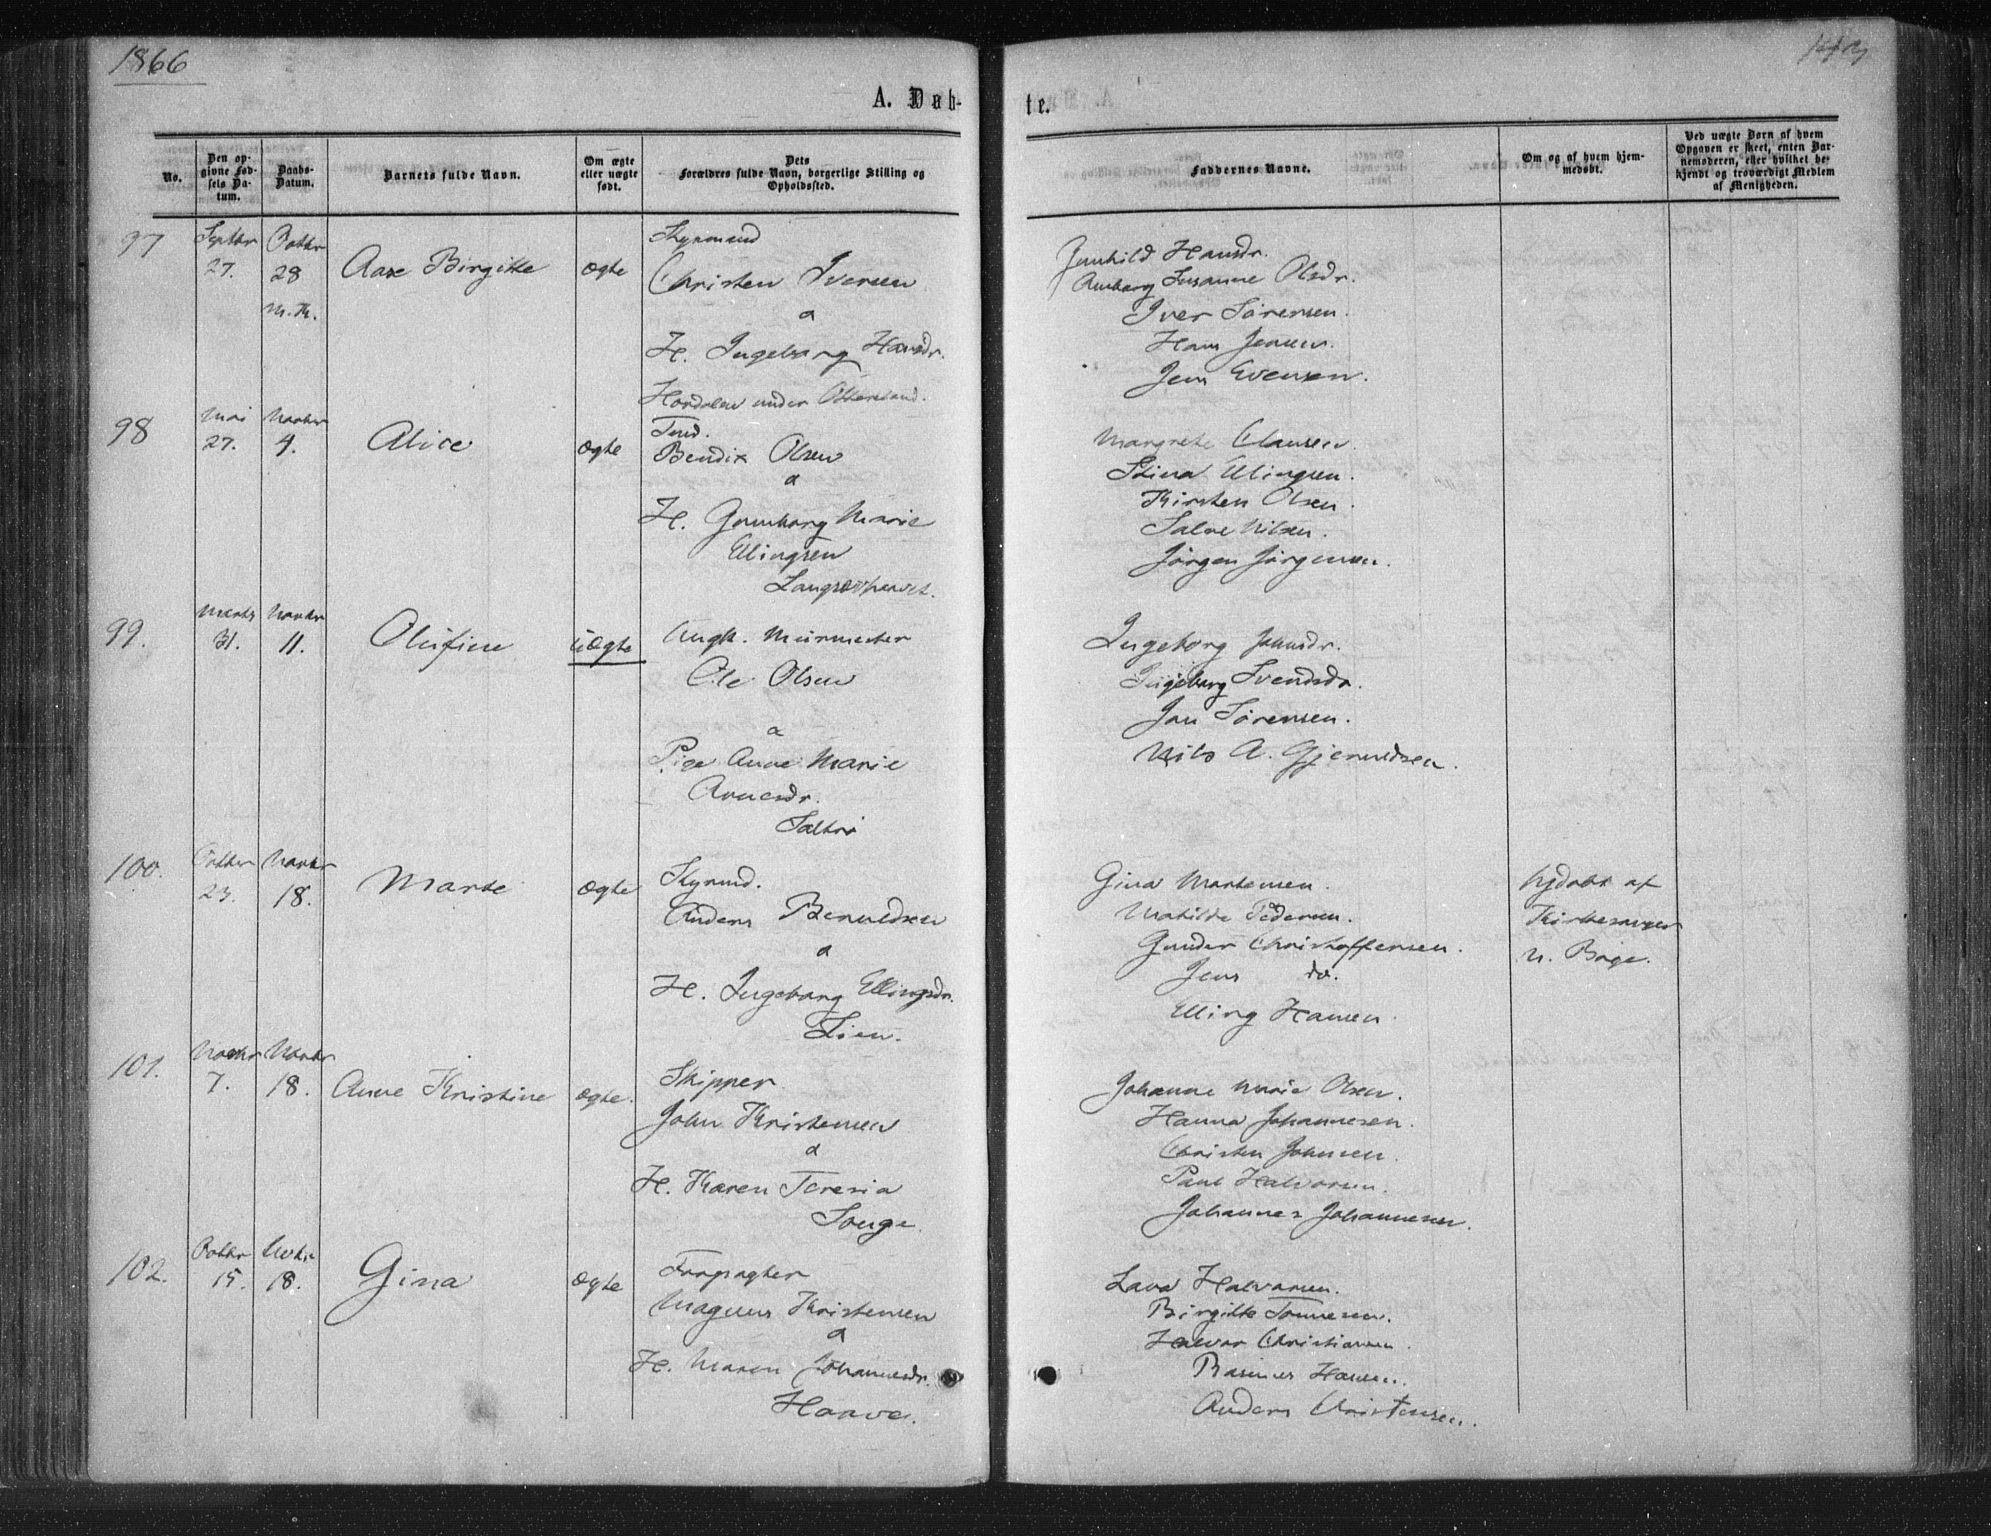 1866
A. Døb-
te.
No.
Den op-
givne Fød-
sels Da-
tum.
Daabs-
Datum.
Barnets fulde Navn.
Om ægte
eller uægte
født.
Dets
Forældres fulde Navn, borgerlige Stilling og
Opholdssted.
Faddernes Navne.
Om og af hvem hjem-
medøbt.
Ved uægte Børn af hvem
Opgaven er skeet, enten Bar-
nemoderen, eller hvilket be-
kjendt og troværdigt Medlem
af Menigheden.
97
Septbr
27.
Octbr
28
Aase Birgitte
Ægte
Styrmand
Christen Iversen
&
H. Ingeborg Hansdr.
under
Gunhild Hansdr.
Susanne Olsdr.
Iver Sørensen.
Hans Jensen.
Jens Evensen.
98
Mai
27.
Novbr
4.
Alice
Ægte
Tmd.
Bendix Olsen
&
H. Gunborg Marie
Ellingsen
Margrete Clausen.
Stina Ellingsen.
Kirsten Olsen.
Salve Nilsen.
Jørgen Jørgensen.
99.
Marts
31.
Novbr
11.
Olufine
uÆgte
Ungk. Murmester
Ole Olsen
&
Pige Anne Marie
Arnesdr.
Ingeborg Johnsdr.
Ingeborg Svendsdr.
Jan Sørensen.
Nils A. Gjeruldsen.
100.
Octbr
23.
Novbr
18.
Marte
Ægte
Styrmd.
Anders Beruldsen
&
H. Ingeborg Ellingsdr.
Lien.
Gina Mortensen.
Matilde Pedersen.
Gunder Christoffersen.
Jens do.
Elling Hansen.
hjdøbt af
Kirkesanger
N. Boge.
101.
Novbr
7.
Novbr
18.
Anne Kristine
Ægte.
Skipper
John Kristensen
&
H. Karen Teresia
Songe.
Johanne Marie Olsen.
Hanna Johannesen.
Christen Johnsen.
Paul Halvorsen.
Johannes Johannesen.
102.
Octbr
15.
Novbr
18.
Gina
Ægte
Forpagter
Magnus Kristensen
&
H. Maren Johannesdr.
Haave.
Lava Halvorsen.
Birgitte Tønnesen.
Halvor Christiansen.
Rasmus Hansen.
Anders Christensen.